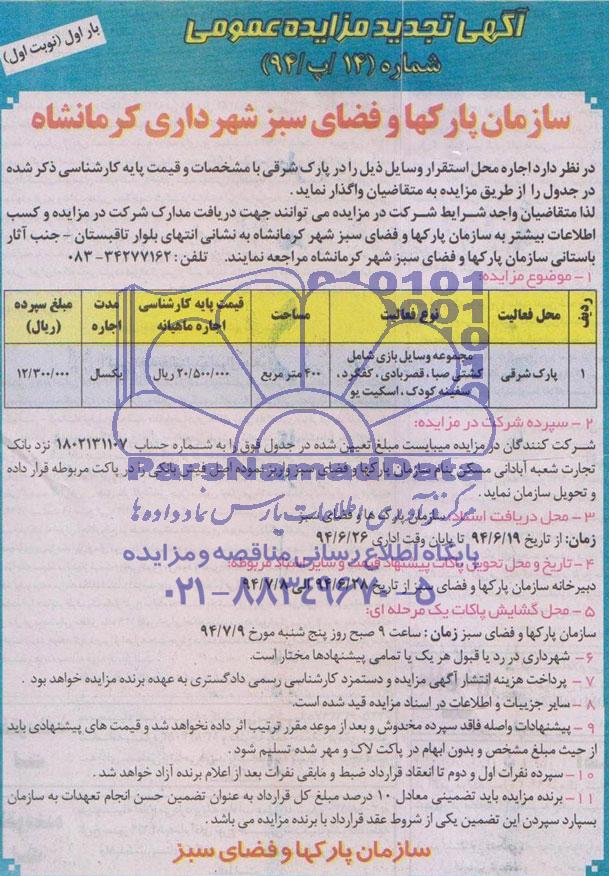 بار اول (نوبت اول)
آگهی تجدید مزایده عمومی
شماره (۱۴/پ/۹۴)
سازمان پارکها و فضای سبز شهرداری کرمانشاه
در نظر دارد اجاره محل استقرار وسایل ذیل را در پارک شرقی با مشخصات و قیمت پایه کارشناسی ذکر شده
در جدول را از طریق مزایده به متقاضیان واگذار نماید.
لذا متقاضیان واجد شرایط شرکت در مزایده می توانند جهت دریافت مدارک شرکت در مزایده و کسب
اطلاعات بیشتر به سازمان پارکها و فضای سبز شهر کرمانشاه به نشانی انتهای بلوار تاقبستان - جنب آثار
باستانی سازمان پارکها و فضای سبز شهر کرمانشاه مراجعه نمایند. تلفن: ۳۴۲۷۷۱۶۲-۰۸۳
۱- موضوع مزایده:
ردیف محل فعالیت نوع فعالیت مساحت قیمت پایه کارشناسی اجاره ماهیانه مدت اجاره مبلغ سپرده (ریال)
۱ پارک شرقی مجموعه وسایل بازی شامل کشتی صبا، قصربادی، کفگرد، سفینه کودک، اسکیت یو ۴۰۰ متر مربع ۲۰/۵۰۰/۰۰۰ ریال یکسال ۱۲/۳۰۰/۰۰۰
۲- سپرده شرکت در مزایده:
شرکت کنندگان در مزایده میبایست مبلغ تعیین شده در جدول فوق را به شماره حساب ۱۸۰۲۱۳۱۱۰۷ نزد بانک
تجارت شعبه آپادانی مسکن بنام سازمان پارکها و فضای سبز واریز نموده اصل فیش بانکی را در پاکت مربوطه قرار داده
و تحویل سازمان نماید.
ParsNamadData
مرکز فرآوری اطلاعات پارس نماد داده ها
۳- محل دریافت اسناد: سازمان پارک ها و فضای سبز
زمان: از تاریخ ۹۴/۶/۱۹ تا پایان وقت اداری ۹۴/۶/۲۶
پایگاه اطلاع رسانی مناقصه و مزایده
۴- تاریخ و محل تحویل پاکات پیشنهاد قیمت و سایر اسناد مربوطه:
دبیرخانه سازمان پارکها و فضای سبز از تاریخ ۹۴/۶/۲۸ الی ۹۴/۷/۸
۰۲۱-۸۸۳۴۹۶۷۰-۵
۵- محل گشایش پاکات یک مرحله ای:
سازمان پارکها و فضای سبز زمان: ساعت ۹ صبح روز پنج شنبه مورخ ۹۴/۷/۹
۶- شهرداری در رد یا قبول هر یک یا تمامی پیشنهادها مختار است.
۷- پرداخت هزینه انتشار آگهی مزایده و دستمزد کارشناسی رسمی دادگستری به عهده برنده مزایده خواهد بود.
۸- سایر جزییات و اطلاعات در اسناد مزایده قید شده است.
۹- پیشنهادات واصله فاقد سپرده مخدوش و بعد از موعد مقرر ترتیب اثر داده نخواهد شد و قیمت های پیشنهادی باید
از حیث مبلغ مشخص و بدون ابهام در پاکت لاک و مهر شده تسلیم شود.
۱۰- سپرده نفرات اول و دوم تا انعقاد قرارداد ضبط و مابقی نفرات بعد از اعلام برنده آزاد خواهد شد.
۱۱- برنده مزایده باید تضمینی معادل ۱۰ درصد مبلغ کل قرارداد به عنوان تضمین حسن انجام تعهدات به سازمان
بسپارد سپردن این تضمین یکی از شروط عقد قرارداد با برنده مزایده می باشد.
سازمان پارکها و فضای سبز